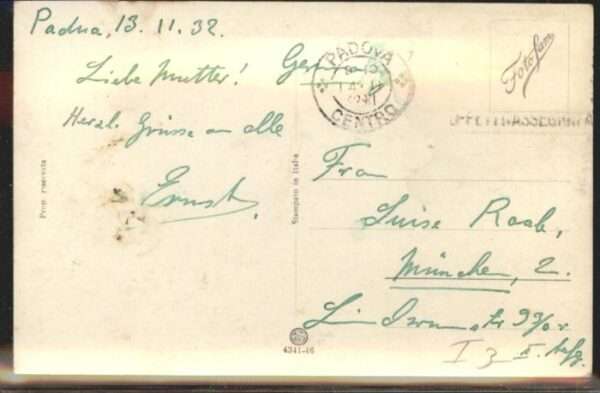 Padua, 13. 11. 32.
Liebe Mutter!
Herzl. Grüsse an alle
Ernst.
PADOVA
CENTRO
Foto
Frau
Luise Raab,
München, 2.
str 93/0 r.
I 3 II. Aufg.
Prop. riservata
Stampato in Italia
4341-16